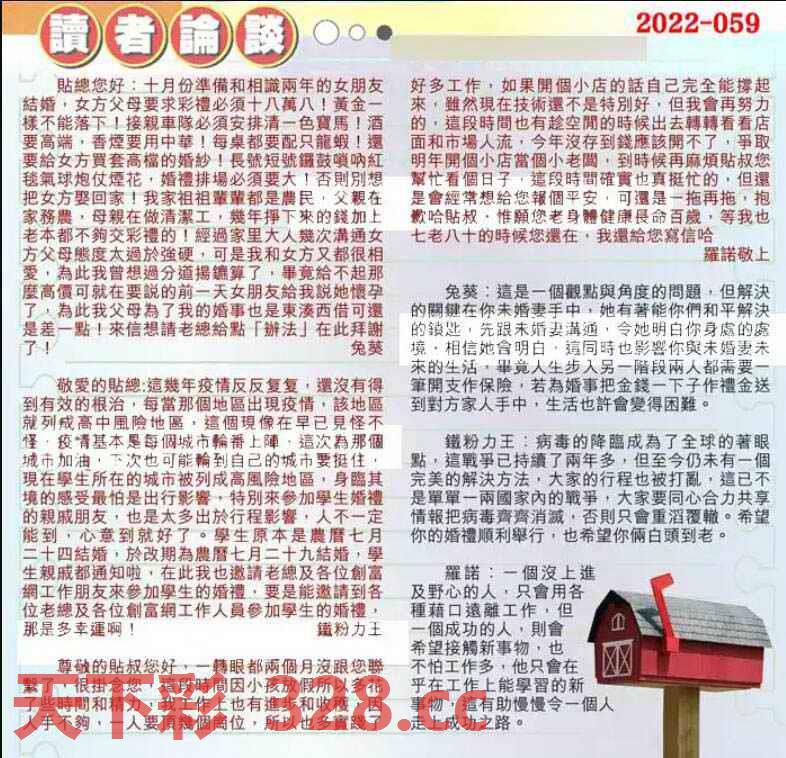 讀者論談
2022-059
貼總您好：十月份準備和相識兩年的女朋友
結婚，女方父母要求彩禮必須十八萬八！黃金一
樣不能落下！接親車隊必須安排清一色寶馬！酒
要高端，香煙要用中華！每桌都要配只龍蝦！還
要給女方買套高檔的婚紗！長號短號鑼鼓嗩吶紅
毯氣球炮仗煙花，婚禮排場必須要大！否則別想
把女方娶回家！我家祖祖輩輩都是農民，父親在
家務農，母親在做清潔工，幾年掙下來的錢加上
老本都不夠交彩禮的！經過家里大人幾次溝通女
方父母態度太過於強硬，可是我和女方又都很相
愛，為此我曾想過分道揚鑣算了，畢竟給不起那
麼高價可就在要說的前一天女朋友給我說她懷孕
了，為此我父母為了我的婚事也是東湊西借可還
是差一點！來信想請老總給點「辦法」在此拜謝
了！ 兔葵
敬愛的貼總:這幾年疫情反反复复，還沒有得
到有效的根治，每當那個地區出現疫情，該地區
就列成高中風險地區，這個現像在早已見怪不
怪，疫情基本是每個城市輪番上陣，這次為那個
城市加油，下次也可能輪到自己的城市要挺住，
現在學生所在的城市被列成高風險地區，身臨其
境的感受最怕是出行影響，特別來參加學生婚禮
的親戚朋友，也是太多出於行程影響，人不一定
能到，心意到就好了。學生原本是農曆七月
二十四結婚，於改期為農曆七月二十九結婚，學
生親戚都通知啦，在此我也邀請老總及各位創富
網工作朋友來參加學生的婚禮，要是能邀請到各
位老總及各位創富網工作人員參加學生的婚禮，
那是多幸運啊！ 鐵粉力王
尊敬的貼叔您好，一轉眼都兩個月沒跟您聯
繫了，很掛念您，這段時間因小孩放假所以多花
了些時間和精力，我工作上也有進步和收穫，因
人手不夠，一人要頂幾個崗位，所以也多實踐了
好多工作，如果開個小店的話自己完全能撐起
來，雖然現在技術還不是特別好，但我會再努力
的，這段時間也有趁空閒的時候出去轉轉看看店
面和市場人流，今年沒存到錢應該開不了，爭取
明年開個小店當個小老闆，到時候再麻煩貼叔您
幫忙看個日子，這段時間確實也真挺忙的，但還
是會經常想給您報個平安，可還是一拖再拖，抱
歉哈貼叔，惟願您老身體健康長命百歲，等我也
七老八十的時候您還在，我還給您寫信哈
羅諾敬上
兔葵：這是一個觀點與角度的問題，但解決
的關鍵在你未婚妻手中，她有著能你們和平解決
的鎖匙，先跟未婚妻溝通，令她明白你身處的處
境，相信她會明白，這同時也影響你與未婚妻未
來的生活，畢竟人生步入另一階段兩人都需要一
筆開支作保險，若為婚事把金錢一下子作禮金送
到對方家人手中，生活也許會變得困難。
鐵粉力王：病毒的降臨成為了全球的著眼
點，這戰爭已持續了兩年多，但至今仍未有一個
完美的解決方法，大家的行程也被打亂，這已不
是單單一兩國家內的戰爭，大家要同心合力共享
情報把病毒齊齊消滅，否則只會重滔覆轍。希望
你的婚禮順利舉行，也希望你倆白頭到老。
羅諾：一個沒上進
及野心的人，只會用各
種藉口遠離工作，但
一個成功的人，則會
希望接觸新事物，也
不怕工作多，他只會在
乎在工作上能學習的新
事物，這有助慢慢令一個人
走上成功之路。
天下彩 328.cc